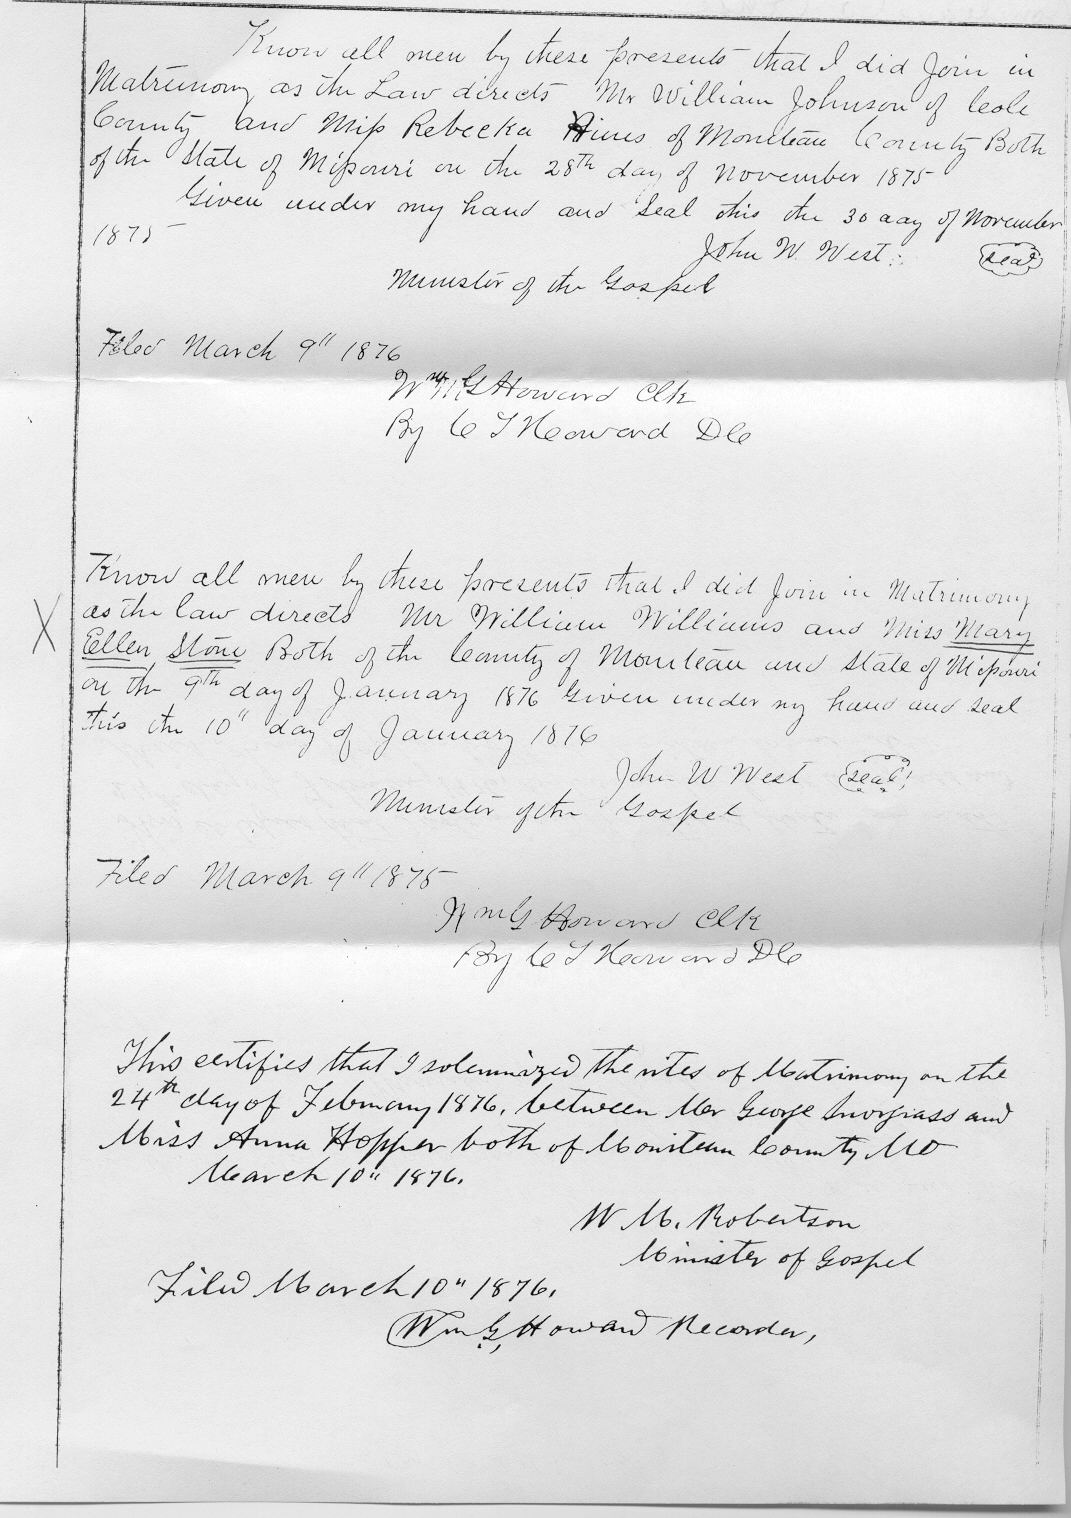 Know all men by these presents that I did Join in
Matrimony as the Law directs Mr William Johnson of Cole
County and Miss Rebecka Hines of Moniteau County Both
of the State of Missouri on the 28th day of November 1875
Given under my hand and Seal this the 30 day of November
1875
John W. West seal
Minister of the Gospel
Filed March 9" 1876
Wm G Howard Clk
By C T Howard DC
Know all men by these presents that I did Join in Matrimony
X as the law directs Mr William Williams and Miss Mary
Ellen Stone Both of the County of Moniteau and State of Missouri
on the 9th day of January 1876 Given under my hand and seal
this the 10" day of January 1876
John W West seal
Minister of the Gospel
Filed March 9" 1875
Wm G Howard Clk
By C T Howard DC
This certifies that I solemnized the rites of Matrimony on the
24th day of February 1876, between Mr George Snorgrass and
Miss Anna Hopper both of Moniteau County MO
March 10" 1876.
W M. Robertson
Minister of Gospel
Filed March 10" 1876.
Wm G, Howard Recorder,